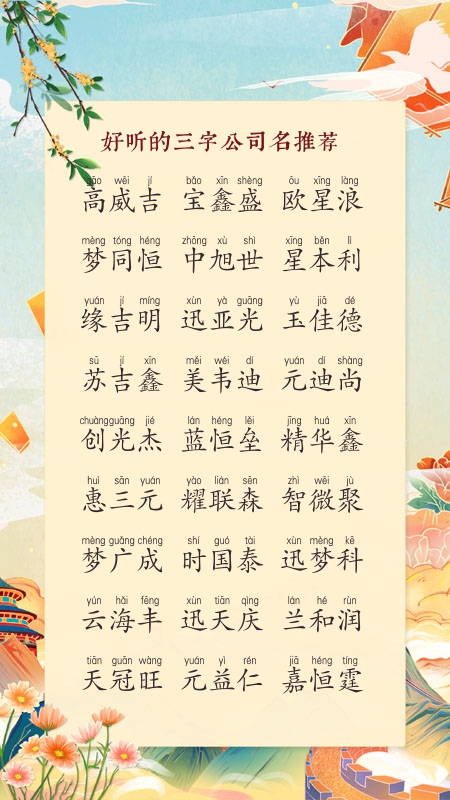 好听的三字公司名推荐
gāo wēi jí bǎo xīn shèng ōu xīng làng
高威吉 宝鑫盛 欧星浪
mèng tóng héng zhōng xù shì xīng běn lì
梦同恒 中旭世 星本利
yuán jí míng xùn yà guāng yù jiā dé
缘吉明 迅亚光 玉佳德
sū jí xīn měi wéi dí yuán dí shàng
苏吉鑫 美韦迪 元迪尚
chuàngguāng jié lán héng lěi jīng huá xīn
创光杰 蓝恒垒 精华鑫
huì sān yuán yào lián sēn zhì wēi jù
惠三元 耀联森 智微聚
mèng guǎng chéng shí guó tài xùn mèng kē
梦广成 时国泰 迅梦科
yún hǎi fēng xùn tiān qìng lán hé rùn
云海丰 迅天庆 兰和润
tiān guān wàng yuán yì rén jiā héng tíng
天冠旺 元益仁 嘉恒霆